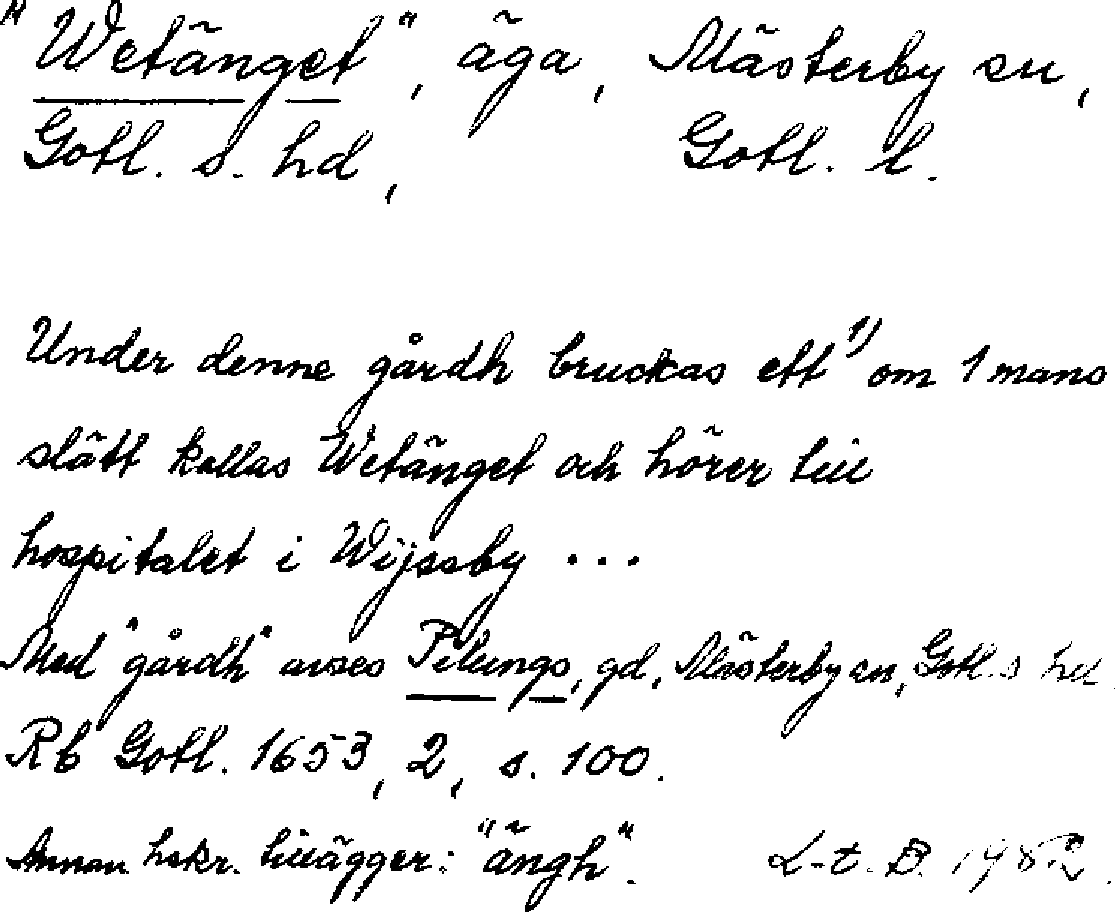 "Wetänget", äga, Mästerby sn,
Gotl. s. hd, Gotl. l.
Under denne gårdh bruckas ett 1) om 1 mans
slätt kallas Wetänget och hörer till
hospitalet i Wijssby ...
Med "gårdh" avses Pilungs, gd, Mästerby sn, Gotl. s hd.
Rb Gotl. 1653, 2, s. 100.
Annan hskr. tillägger: "ängh". L-t. B. 1982.